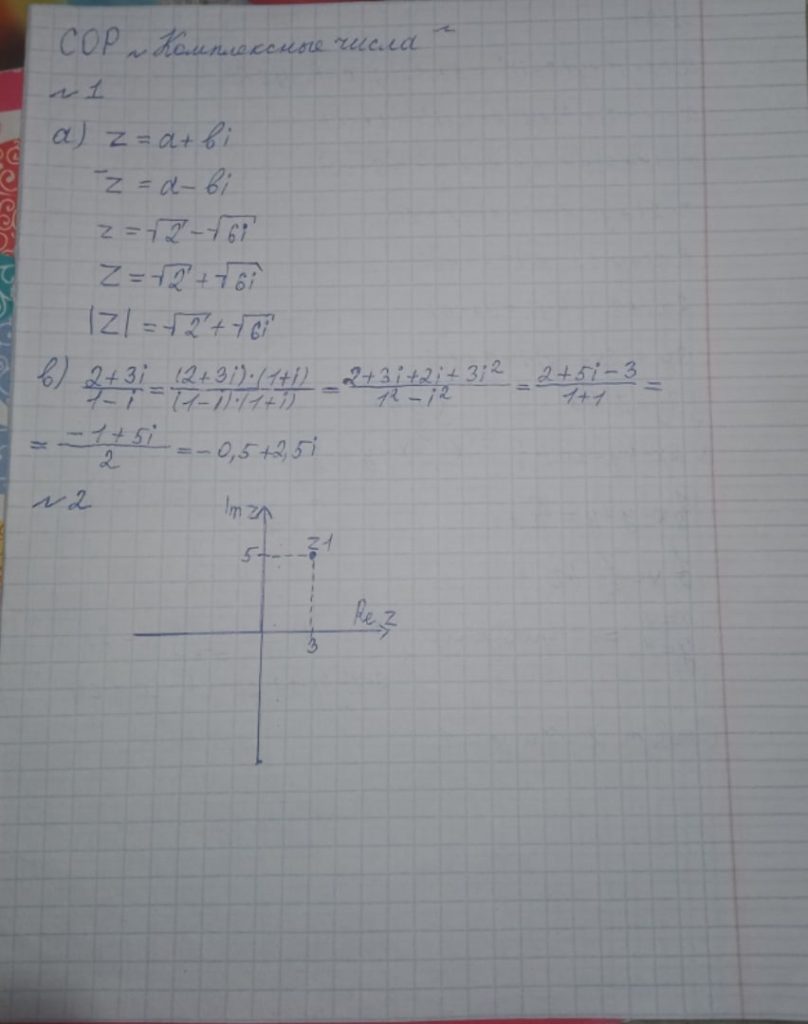 СОР „Комплексные числа"
№1
а) z = a + вi
‾z = a - вi
z = √2 - √6i
Z = √2 + √6i
|Z| = √2 + √6i
в) (2+3i)/(1-i) = ((2+3i)·(1+i))/((1-i)·(1+i)) = (2+3i+2i+3i²)/(1²-i²) = (2+5i-3)/(1+1) =
= (-1+5i)/2 = -0,5+2,5i
№2
Im z
5 z1
Re z
3